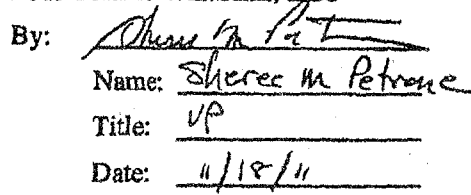 By: Sheree M Pet
Name: Sheree M Petrone
Title: VP
Date: 11/18/11